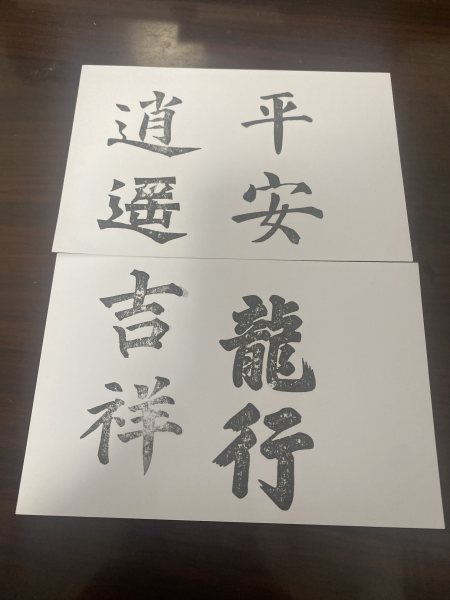 平安
逍遥
龍行
吉祥